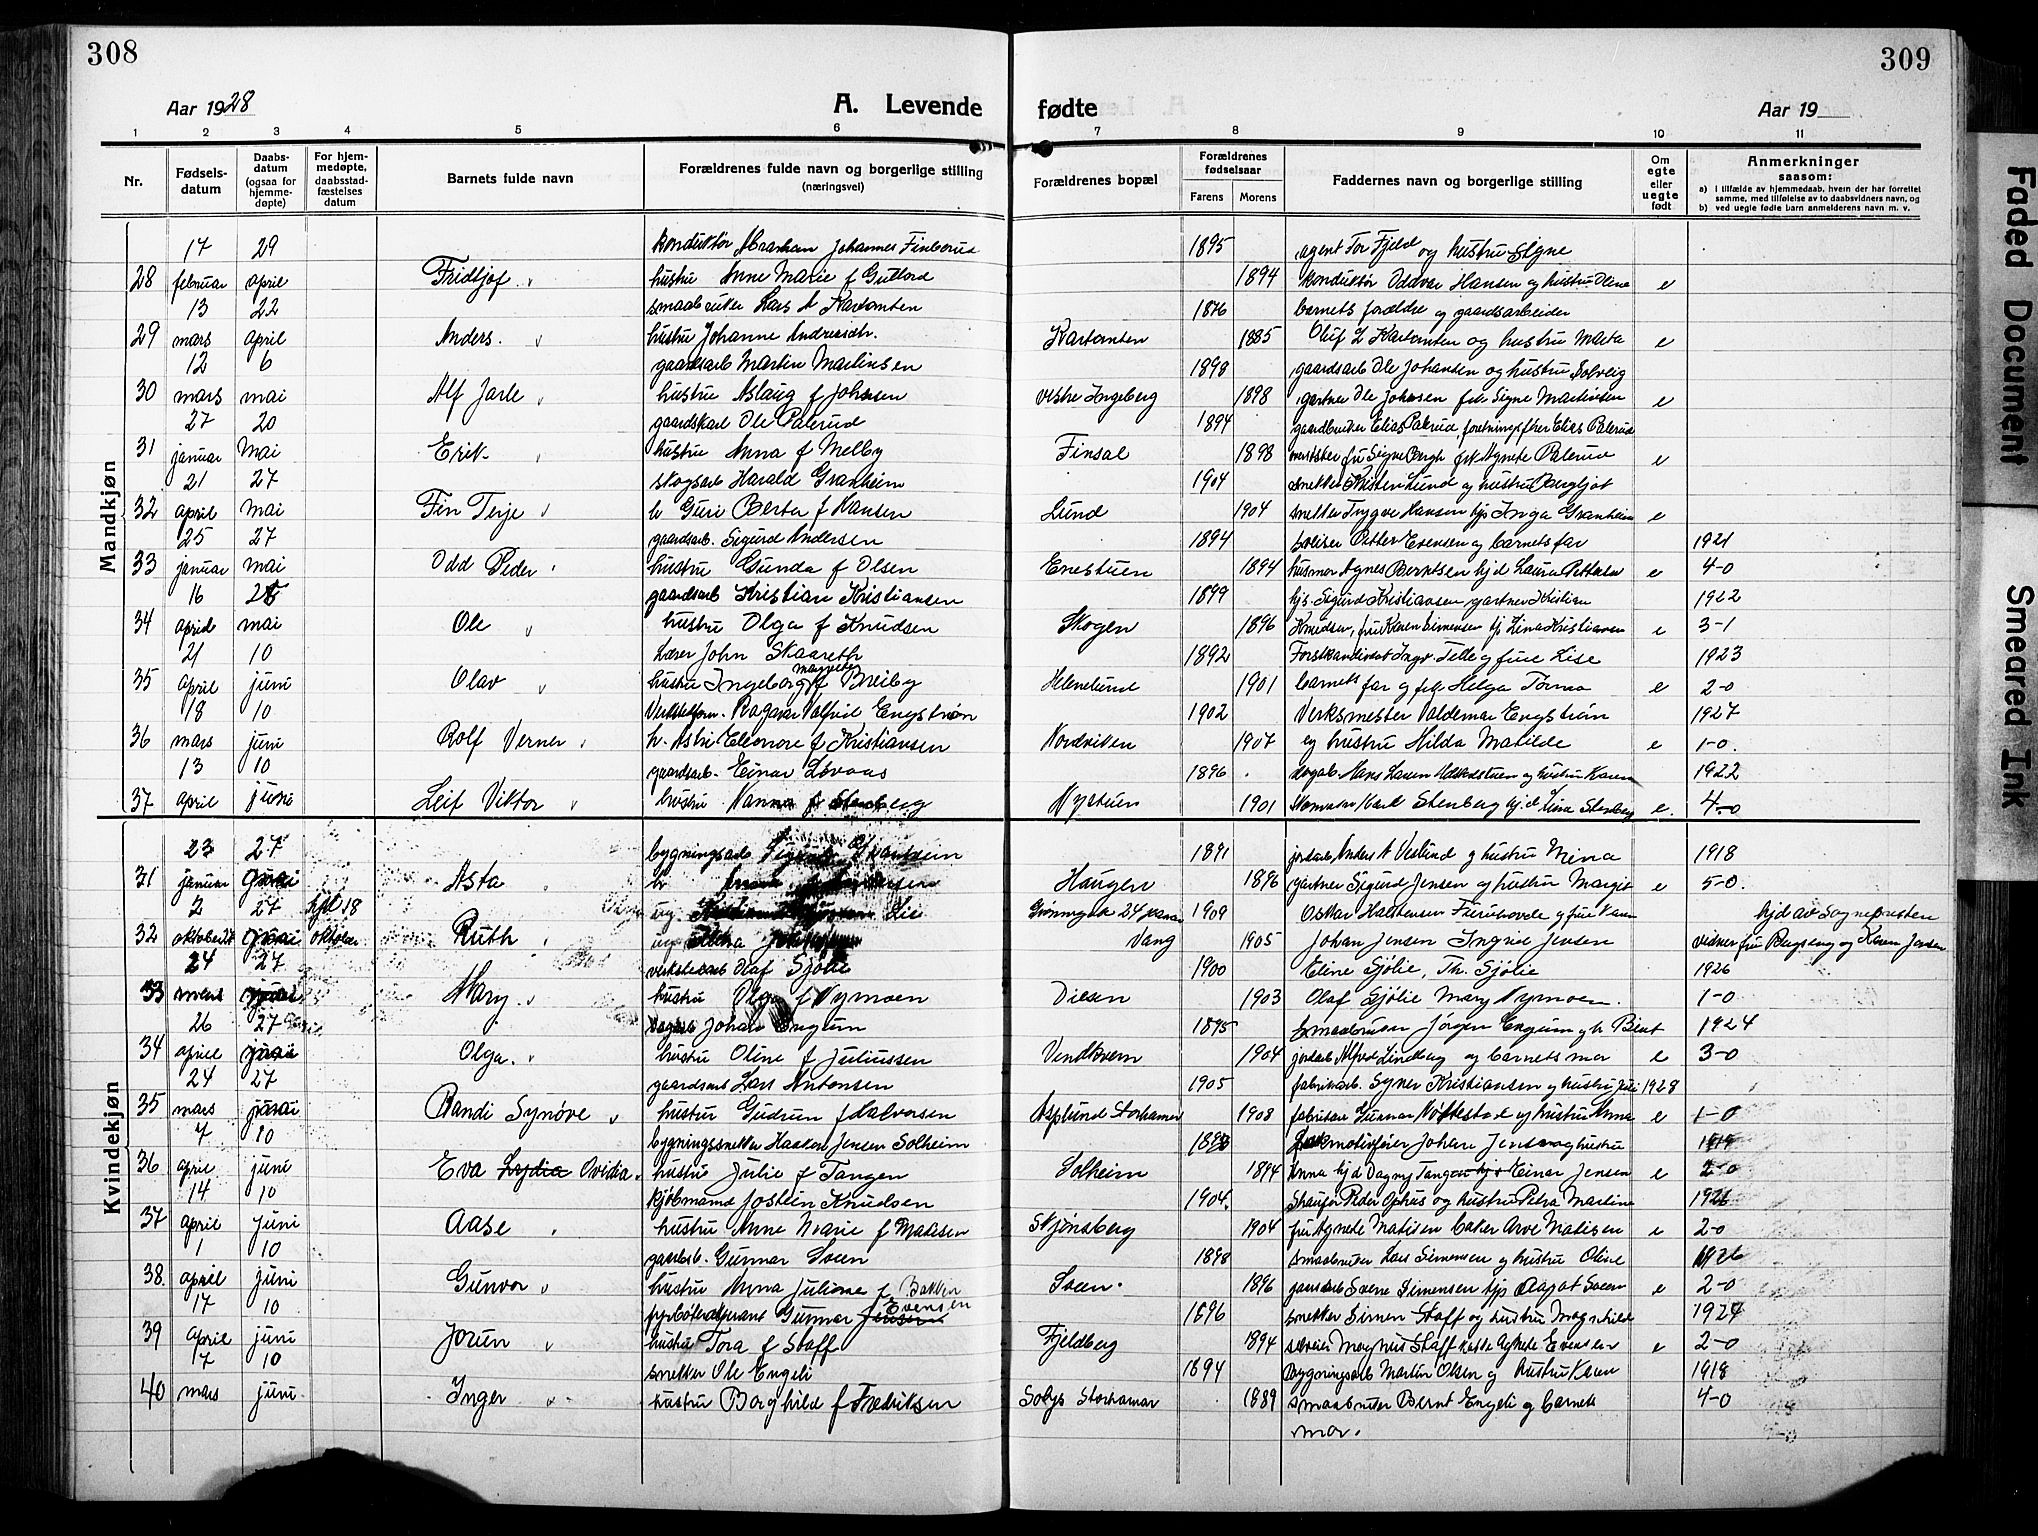 308
309
Aar 1928
A. Levende
fødte
Aar 19
1 2 3 4 5 6 7 8 9 10 11
Nr.
Fødselsdatum
Daabsdatum (ogsaa for hjemmedøpte)
For hjemmedøpte, daabsstadfæstelses datum
Barnets fulde navn
Forældrenes fulde navn og borgerlige stilling (næringsvei)
Forældrenes bopæl
Forældrenes fødselsaar
Farens Morens
Faddernes navn og borgerlige stilling
Om egte eller uegte født
Anmerkninger saasom:
a) i tilfælde av hjemmedaab, hvem der har forrettet samme, med tilføielse av to daabsvidners navn, og
b) ved uegte fødte barn anmelderens navn m. v.
Mandkjøn
17 29 konduktør Abraham Johannes Finborud 1895 agent Tor Fjeld og hustru Signe
28 februar april Fridtjof hustru Anne Marie f Guttord 1894 konduktør Oddvar Hansen og hustru Oline e
13 22 smaabruker Lars A Kartomten 1876 barnets forældre og gaardsarbeider
29 mars april Anders hustru Johanne Andreasdtr. Kartomten 1885 Oluf L Kartomten og hustru Marta e
12 6 gaardsarb Martin Martinsen 1898 gaardsarb Ole Johansen og hustru Solveig
30 mars mai Alf Jarle hustru Aslaug f Johnsen vestre Ingeberg 1898 gartner Ole Johnsen frk Signe Martinsen e
27 20 gaardskarl Ole Palerud 1894 gaardbruker Elias Palerud,
31 januar mai Erik hustru Anna f Melby Finsal 1898 fru Signe Bergh frk Agnete Palerud e
21 27 skogsarb Harald Granheim 1904 snekker Kristen Lund og hustru Bergljot
32 april mai Fin Terje h Guri Berta f Hansen Lund 1904 snekker Trygve Hansen pjs Inga Granheim e
25 27 gaardsarb. Sigurd Andersen 1894 Petter Evensen og barnets far 1921
33 januar mai Odd Peder hustru Gunda f Olsen Enestuen 1894 husmor Agnes Berntsen hjd Laura Pettersen e 4-0
16 28 gaardsarb Kristian Kristiansen 1899 hjs. Sigurd Kristiansen gartner Kristian 1922
34 april mai Ole hustru Olga f Knudsen Skogen 1896 Knudsen, fru Karen Simensen pj Lina Kristiansen e 3-1
21 10 Lærer John Skaareth 1892 Forstkandidat Ingv. Telle og frue Lise 1923
35 april juni Olav hustru Ingeborg Magrethe f Breiby Helnelund 1901 barnets far og frk Helga Tørmo e 2-0
18 10 Verkstedform. Ragnar Valfrid Engstrøm 1902 Verksmester Valdemar Engstrøm 1927
36 mars juni Rolf Verner h. Astri Eleonore f Kristiansen Nordviken 1907 og hustru Hilda Matilde e 1-0.
13 10 gaardsarb. Einar Løvaas 1896 Hans Larsen og hustru Karen 1922
37 april juni Leif Viktor hustru Nanna f Stenberg Nystuen 1901 Karl Stenberg hjd Lina Stenberg e. 4-0
Kvindekjøn
23 27 bygningsarb Granheim 1891 jordarb Anders A Veslund og hustru Mina 1918
31 januar mai Asta h Haugen 1896 gartner Sigurd Jensen og hustru Margit e 5-0.
2 27 kfl 18 ug. Lie Grønnegate 24 Hamar 1909 Oskar Halstensen Furuhovde og frue Karen hjd av Sognepresten
32 oktober mai oktober Ruth ug Vang 1905 Johan Jensen Ingrid Jensen vidner fru Bergseng og Karen Jensen
24 27 verkstedarb Olaf Sjølie 1900 Eline Sjølie, Th. Sjølie 1926
33 mars mai Mary hustru Olga f Nymoen Disen 1903 Olaf Sjølie Mary Nymoen. 1-0
26 27 Johan Engum 1895 smaabruker Jørgen Engum og h Berit 1924
34 april mai Olga. hustru Oline f Juliussen Vendkvern 1904 jordarb Alfred Lindberg og barnets mor e 3-0
24 27 gaardsarb Lars Antonsen 1905 fabrikarb. Syver Kristiansen og hustru Juli 1928
35 mars mai Randi Synøve hustru Gudrun f Halvorsen Asplund Storhamar 1908 fabrikarb Gunnar Nottestad og hustru Anna e 1-0
7 10 bygningssnekker Haakon Jensen Solheim 1898 Lokomotivfører Johan Jensen og hustru 1919
36 april juni Eva Lydia Ovidia hustru Julie f Tangen Solheim 1894 Anna hjd Dagny Tangen hjs Einar Jensen e 2-0
14 10 kjøbmand Jostein Knudsen 1904. Peder Ophus og hustru Petra Martine 1926
37 april juni Aase hustru Anne Marie f Matisen Skjønsberg 1904 fru Agnete Matisen baker Arve Matisen e 2-0
1 10 gaardsarb. Gunnar Sveen 1898 smaabruker Lars Simensen og hustru Oline 1926
38. april juni Gunvor hustru Anna Juliane f Bakken Sveen. 1896 gaardsarb Svene Simensen pjs Olagot Sveen e 2-0
17 10 fyrbøteraspirant Gunnar Jensen Evensen 1896 snekker Simen Staff og hustru Magnhild 1924
39 april juni Jorun hustru Tora f Staff Fjeldberg 1894 Magnus Staff Agnete Evensen e 2-0
17 10 snekker Ole Engeli 1894 Bygningsarb Martin Olsen og hustru Karen 1918
40 mars juni Inger hustru Borghild f Fredriksen Solbys Storhamar 1889 smaabruker Bernt Engeli og barnets 4-0
mor.
Faded Document
Smeared Ink